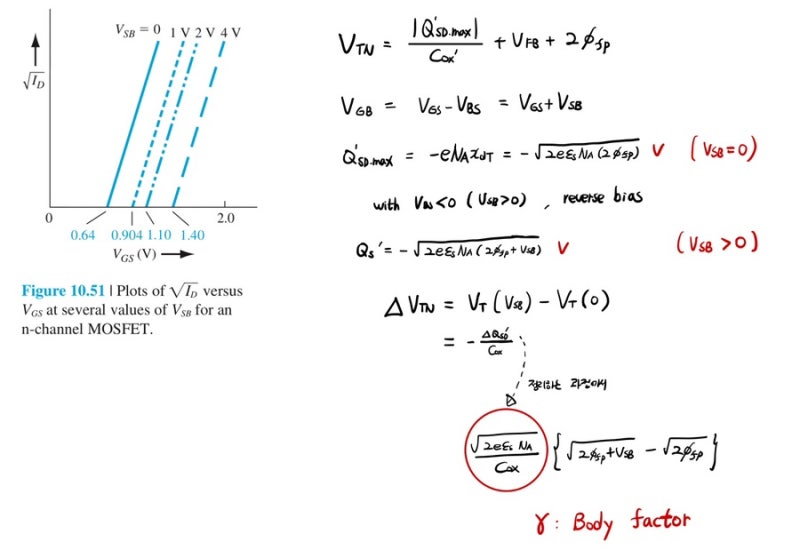 V_SB = 0 1 V 2 V 4 V
√I_D
0 2.0
0.64 0.904 1.10 1.40
V_GS (V)
Figure 10.51 | Plots of √I_D versus
V_GS at several values of V_SB for an
n-channel MOSFET.
V_TN = |Q'_SD.max| / Cox' + V_FB + 2ϕ_fp
V_GB = V_GS - V_BS = V_GS + V_SB
Q'_SD.max = -eN_A x_dT = -√(2eε_s N_A (2ϕ_fp)) V (V_SB = 0)
with V_BS < 0 (V_SB > 0) , reverse bias
Q_s' = -√(2eε_s N_A (2ϕ_fp + V_SB)) V (V_SB > 0)
ΔV_TN = V_T (V_SB) - V_T (0)
= - ΔQ_SD' / Cox
정리하는 과정에서
√(2eε_s N_A) / Cox {√(2ϕ_fp + V_SB) - √(2ϕ_fp)}
γ : Body factor